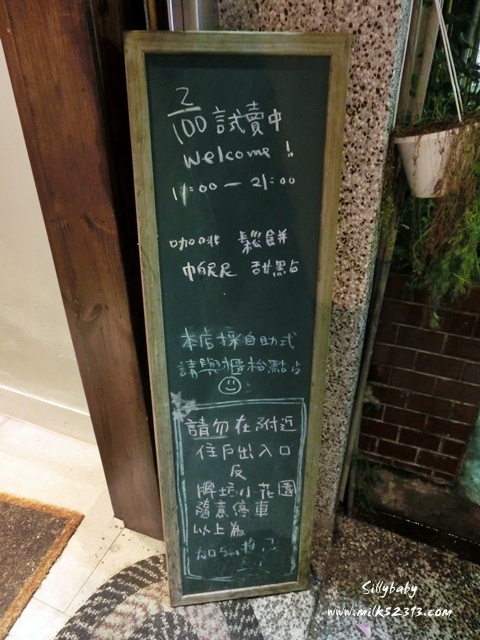 2/100 試賣中
Welcome !
11:00 — 21:00
咖啡 鬆餅
帕尼尼 甜點
本店採自助式
請與櫃枱點占
請勿在附近
住戶出入口
及
牌坊小花園
隨意停車
以上為
Sillybaby
www.milk52313.com